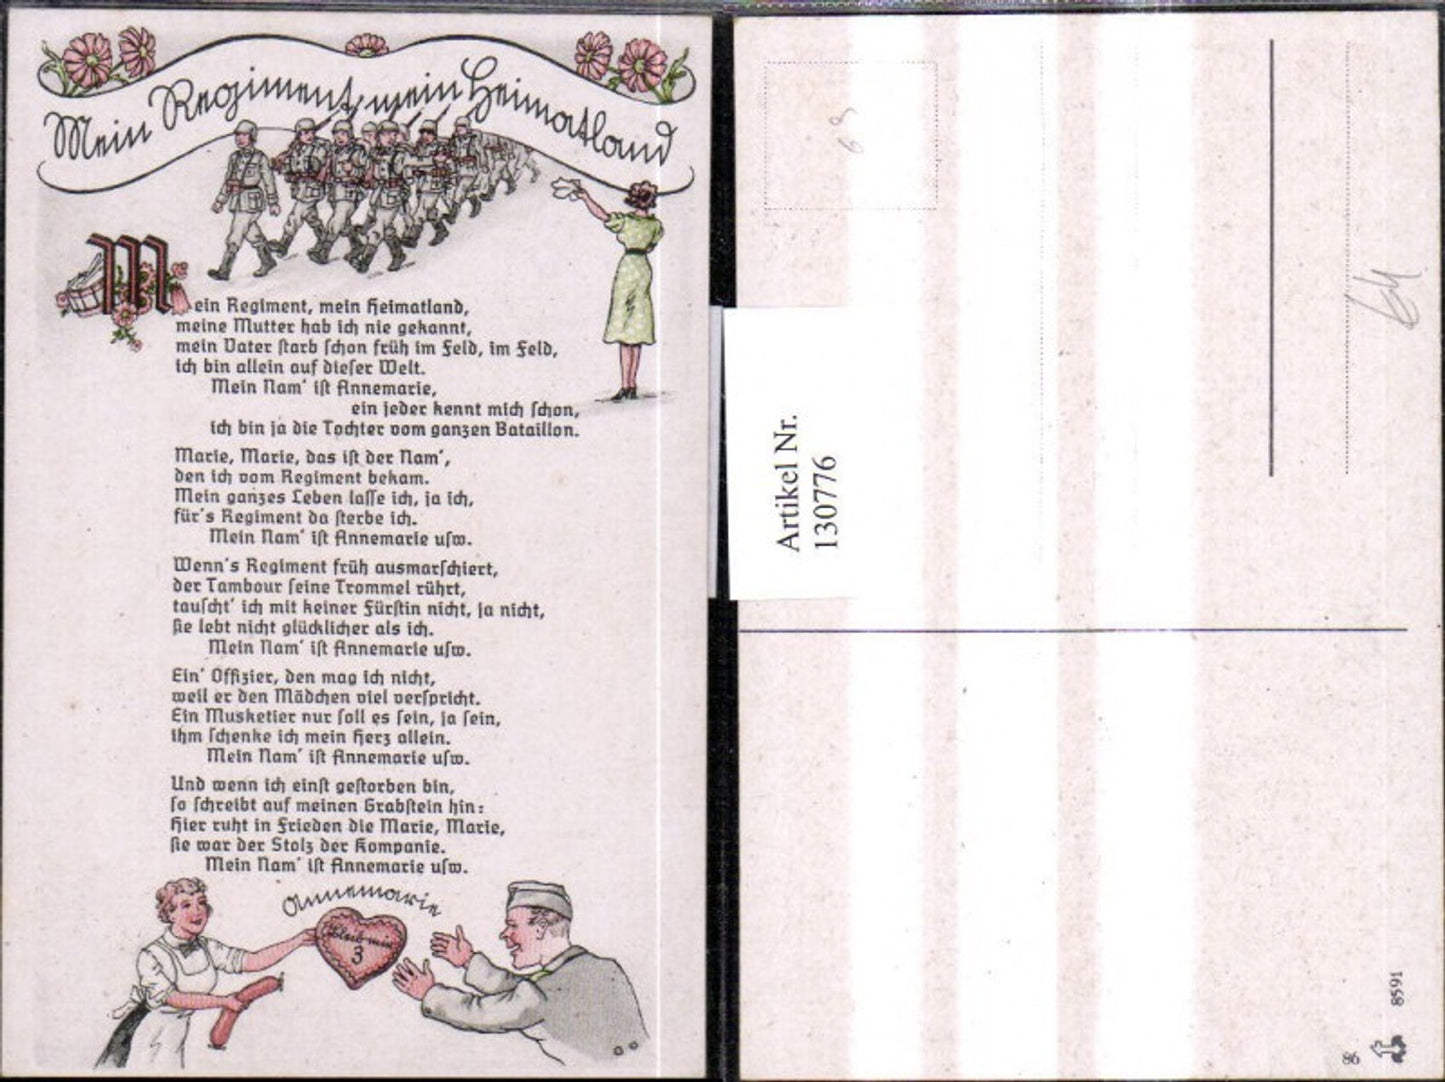 Mein Regiment, mein Heimatland
Mein Regiment, mein Heimatland,
meine Mutter hab ich nie gekannt,
mein Vater starb schon früh im Feld, im Feld,
ich bin allein auf dieser Welt.
Mein Nam' ist Annemarie,
ein jeder kennt mich schon,
ich bin ja die Tochter vom ganzen Bataillon.
Marie, Marie, das ist der Nam',
den ich vom Regiment bekam.
Mein ganzes Leben lasse ich, ja ich,
für's Regiment da sterbe ich.
Mein Nam' ist Annemarie usw.
Wenn's Regiment früh ausmarschiert,
der Tambour seine Trommel rührt,
tauscht' ich mit keiner Fürstin nicht, ja nicht,
sie lebt nicht glücklicher als ich.
Mein Nam' ist Annemarie usw.
Ein' Offizier, den mag ich nicht,
weil er den Mädchen viel verspricht.
Ein Musketier nur soll es sein, ja sein,
ihm schenke ich mein Herz allein.
Mein Nam' ist Annemarie usw.
Und wenn ich einst gestorben bin,
so schreibt auf meinen Grabstein hin:
Hier ruht in Frieden die Marie, Marie,
sie war der Stolz der Kompanie.
Mein Nam' ist Annemarie usw.
Annemarie
Bleib mir
3
Artikel Nr.
130776
64
86
8591